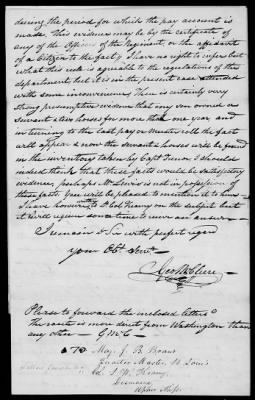 during the period for which the pay account is
made. This evidence may be by the certificate of
any of the Officers of the Regiment, or the affidavit
of a Citizen to the fact. I have no right to infer but
what this rule is agreeable to the regulations of the
department, but it is in the present case attended
with some inconvenience. There is certainly very
strong presumptive evidence that my son owned a
servant & two horses for more than one year and
in turning to the last pay or Muster roll the fact
will appear & now the servant & horses will be found
in the inventory taken by Capt I should
indeed think that these facts would be satisfactory
evidence, perhaps Mr Lewis is not in possession of
these facts. You will be pleased to mention it to him
I have however to Col Kearny on the subject but
it will require some time to receive an answer
I remain Dr Sir with perfect regard
your Obt. Servt.
Geo McClure
Please to forward the inclosed letters
The route is more direct from Washington than
any other G McC
To Maj. J. B. Brant
Quarter Master St Louis
Col. S. W. Kearny